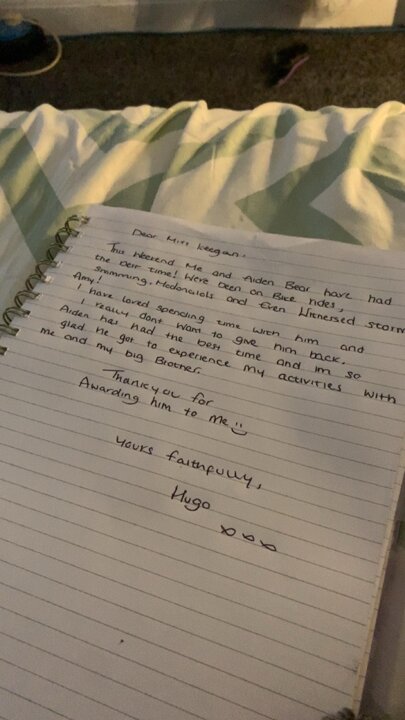 Dear Miss Keegan,
This Weekend Me and Aiden Bear have had
the best time! We've been on Bike rides,
swimming, Mcdonalds and Even Witnessed storm
Amy!
I have loved spending time with him and
I really dont want to give him back.
Aiden has had the best time and im so
glad he got to experience my activities with
me and my big Brother.
Thankyou for
Awarding him to me
Yours faithfully,
Hugo
xxx